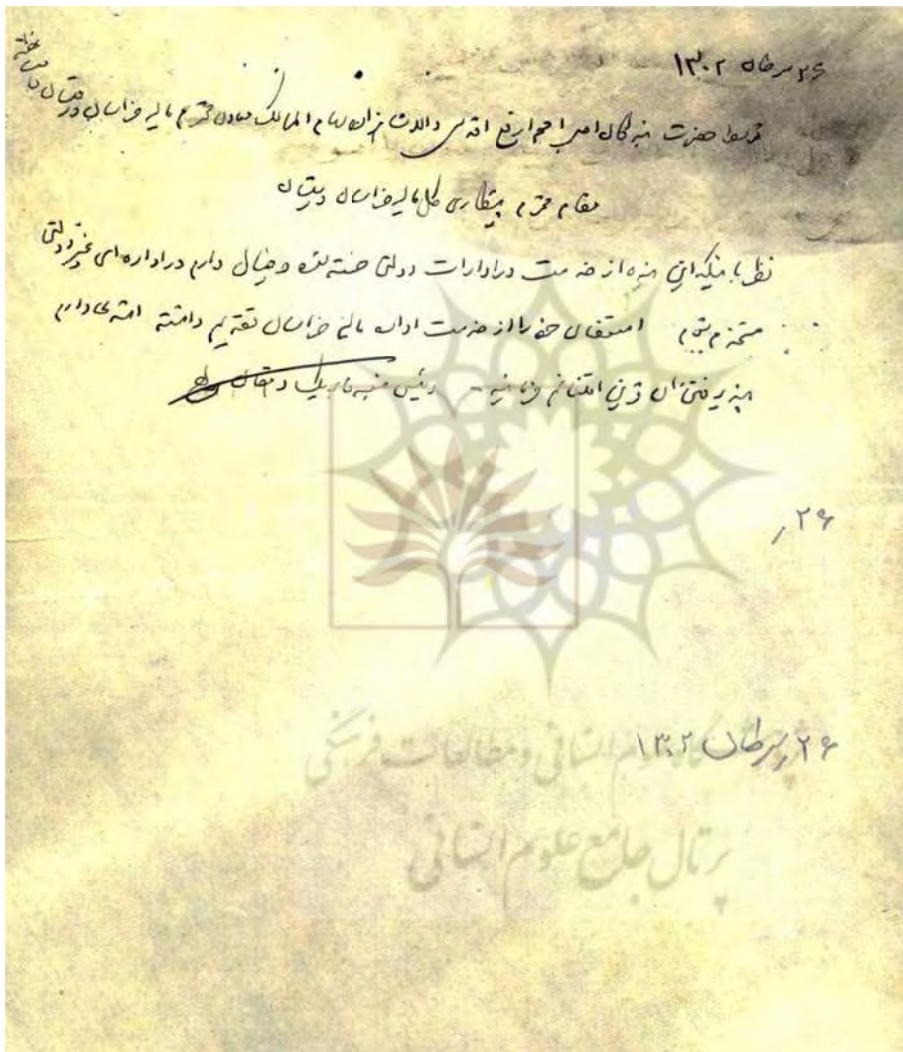 ۲۶ سرطان ۱۳۰۲
توسط حضرت بندگان اجل افخم ارفع اقدس والا شاهزاده الممالک معاون محترم مالیه خراسان و سیستان
مقام محترم پیشکاری کل مالیه خراسان و سیستان
نظر باینکه این بنده از خدمت در ادارات دولتی خسته شده و خیال دارم در اداره های غیر دولتی
مستخدم بشوم استعفای خود را از خدمت اداره مالیه خراسان تقدیم داشته استدعا دارم
بپذیرفتن آن قرین امتنانم فرمائید - رئیس
۲۶
۲۶ سرطان ۱۳۰۲
پژوهشگاه علوم انسانی و مطالعات فرهنگی
پرتال جامع علوم انسانی